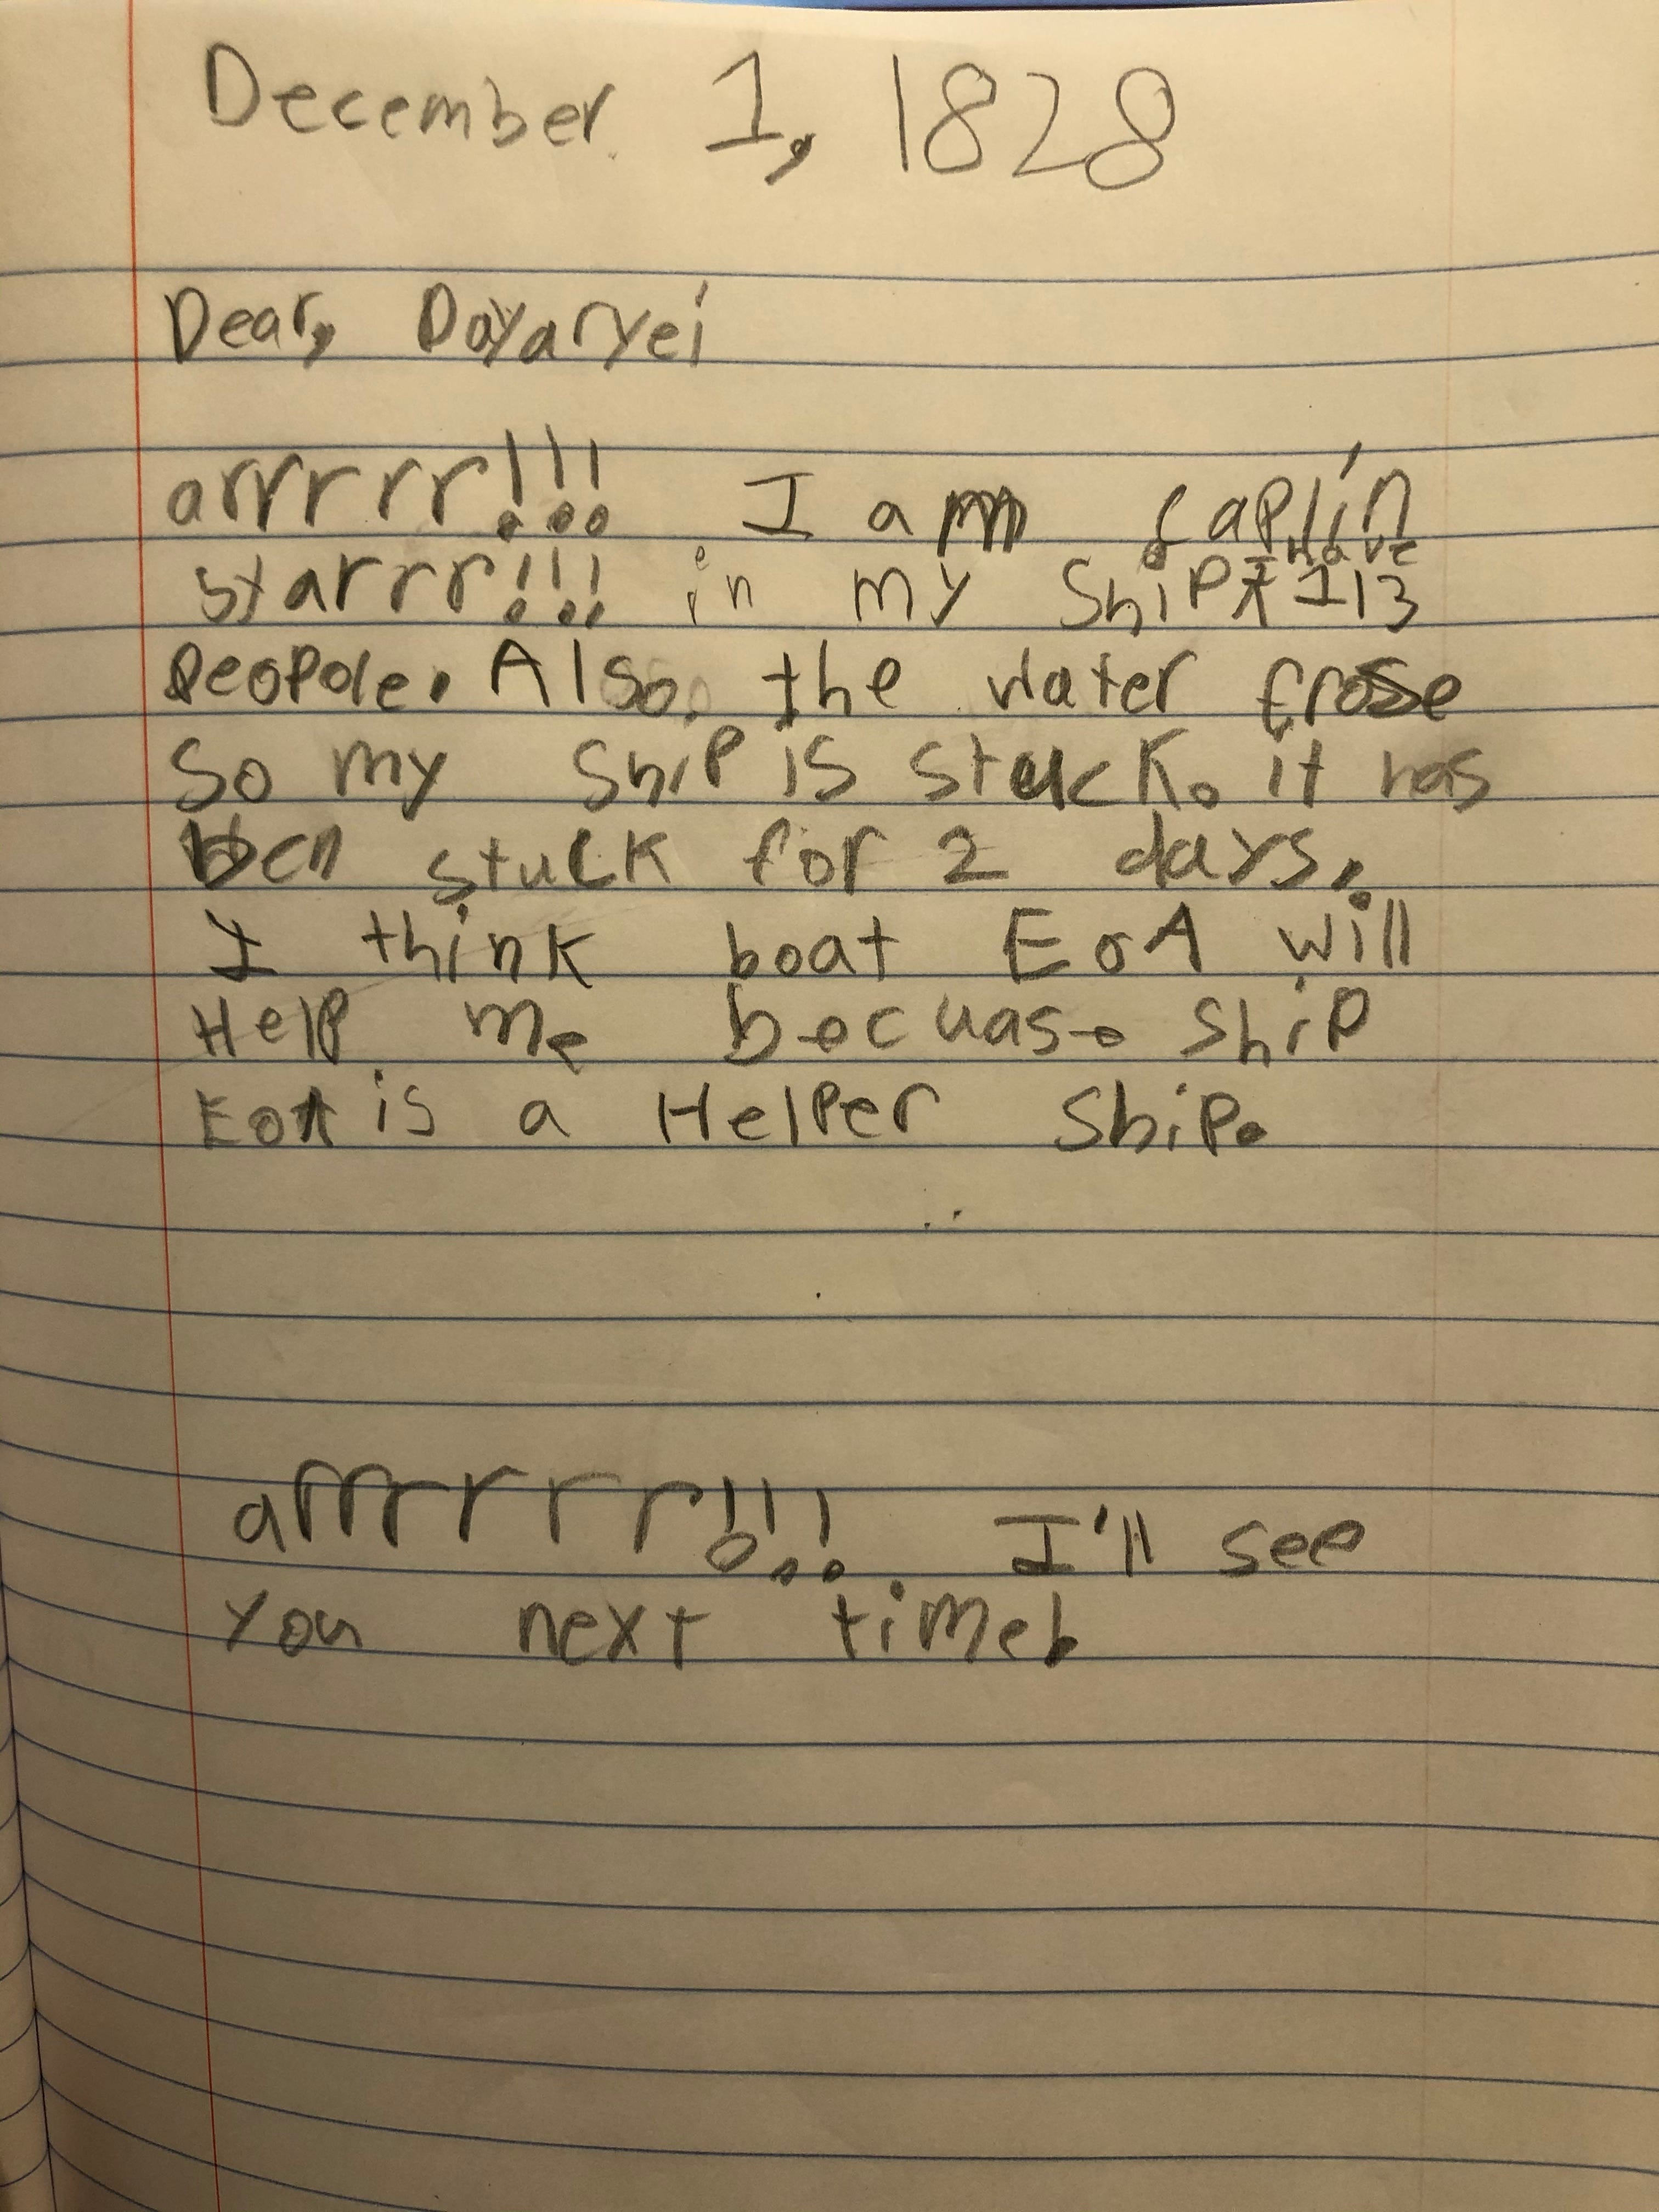 December 1, 1828
Dear, Dayaryei
arrrrrr!!! I am caplin
starrr!!! in my ShiP I Have 113
PeoPole. Also, the water frose
So my ShiP is stuck. it has
ben stuck for 2 days.
I think boat EoA will
Help me becuase ShiP
EoA is a HelPer ShiP.
arrrrrrr!!! I'll see
You next time